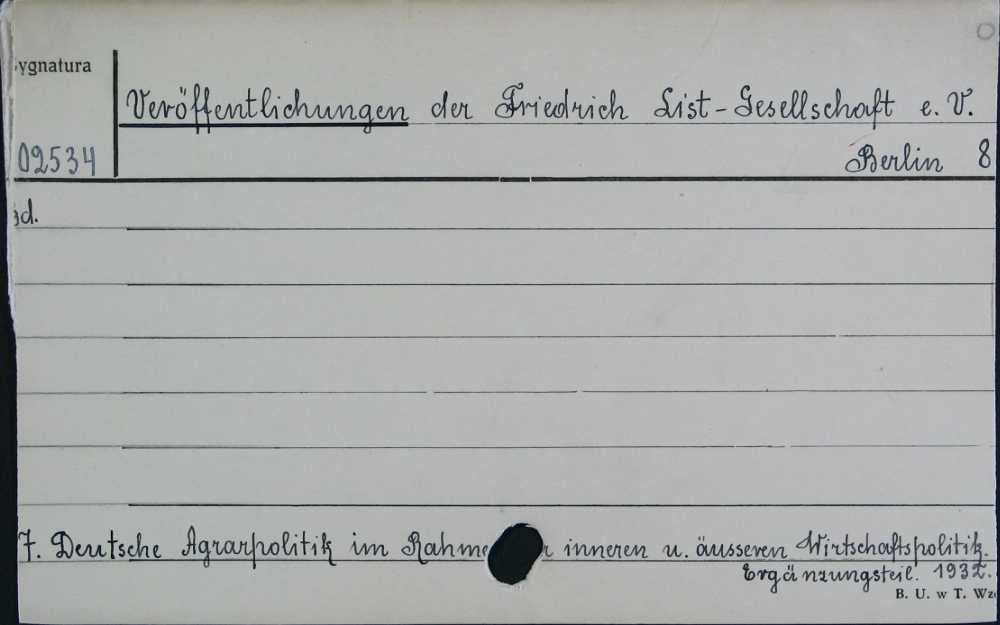 ygnatura
Veröffentlichungen der Friedrich List-Gesellschaft e. V.
02534
Berlin 8
d.
7. Deutsche Agrarpolitik im Rahme r inneren u. äusseren Wirtschaftspolitik.
Ergänzungsteil. 1932.
B. U. w T. Wz